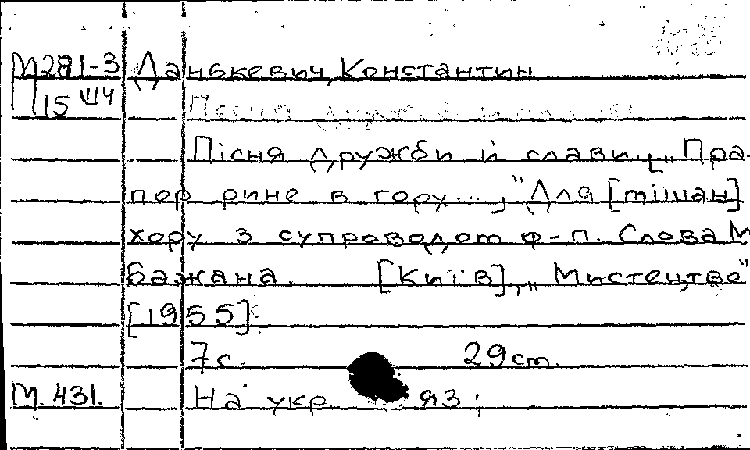 М281-3 Данькевич, Константин
15
Пісня дружби й слави. [„Пра-
пор рине в гору...„ Для [мішан]
хору з супроводом ф-п. Слова М
Бажана. [Київ], „Мистецтво"
[1955]
7с. 29 см.
М. 431. На укр яз;